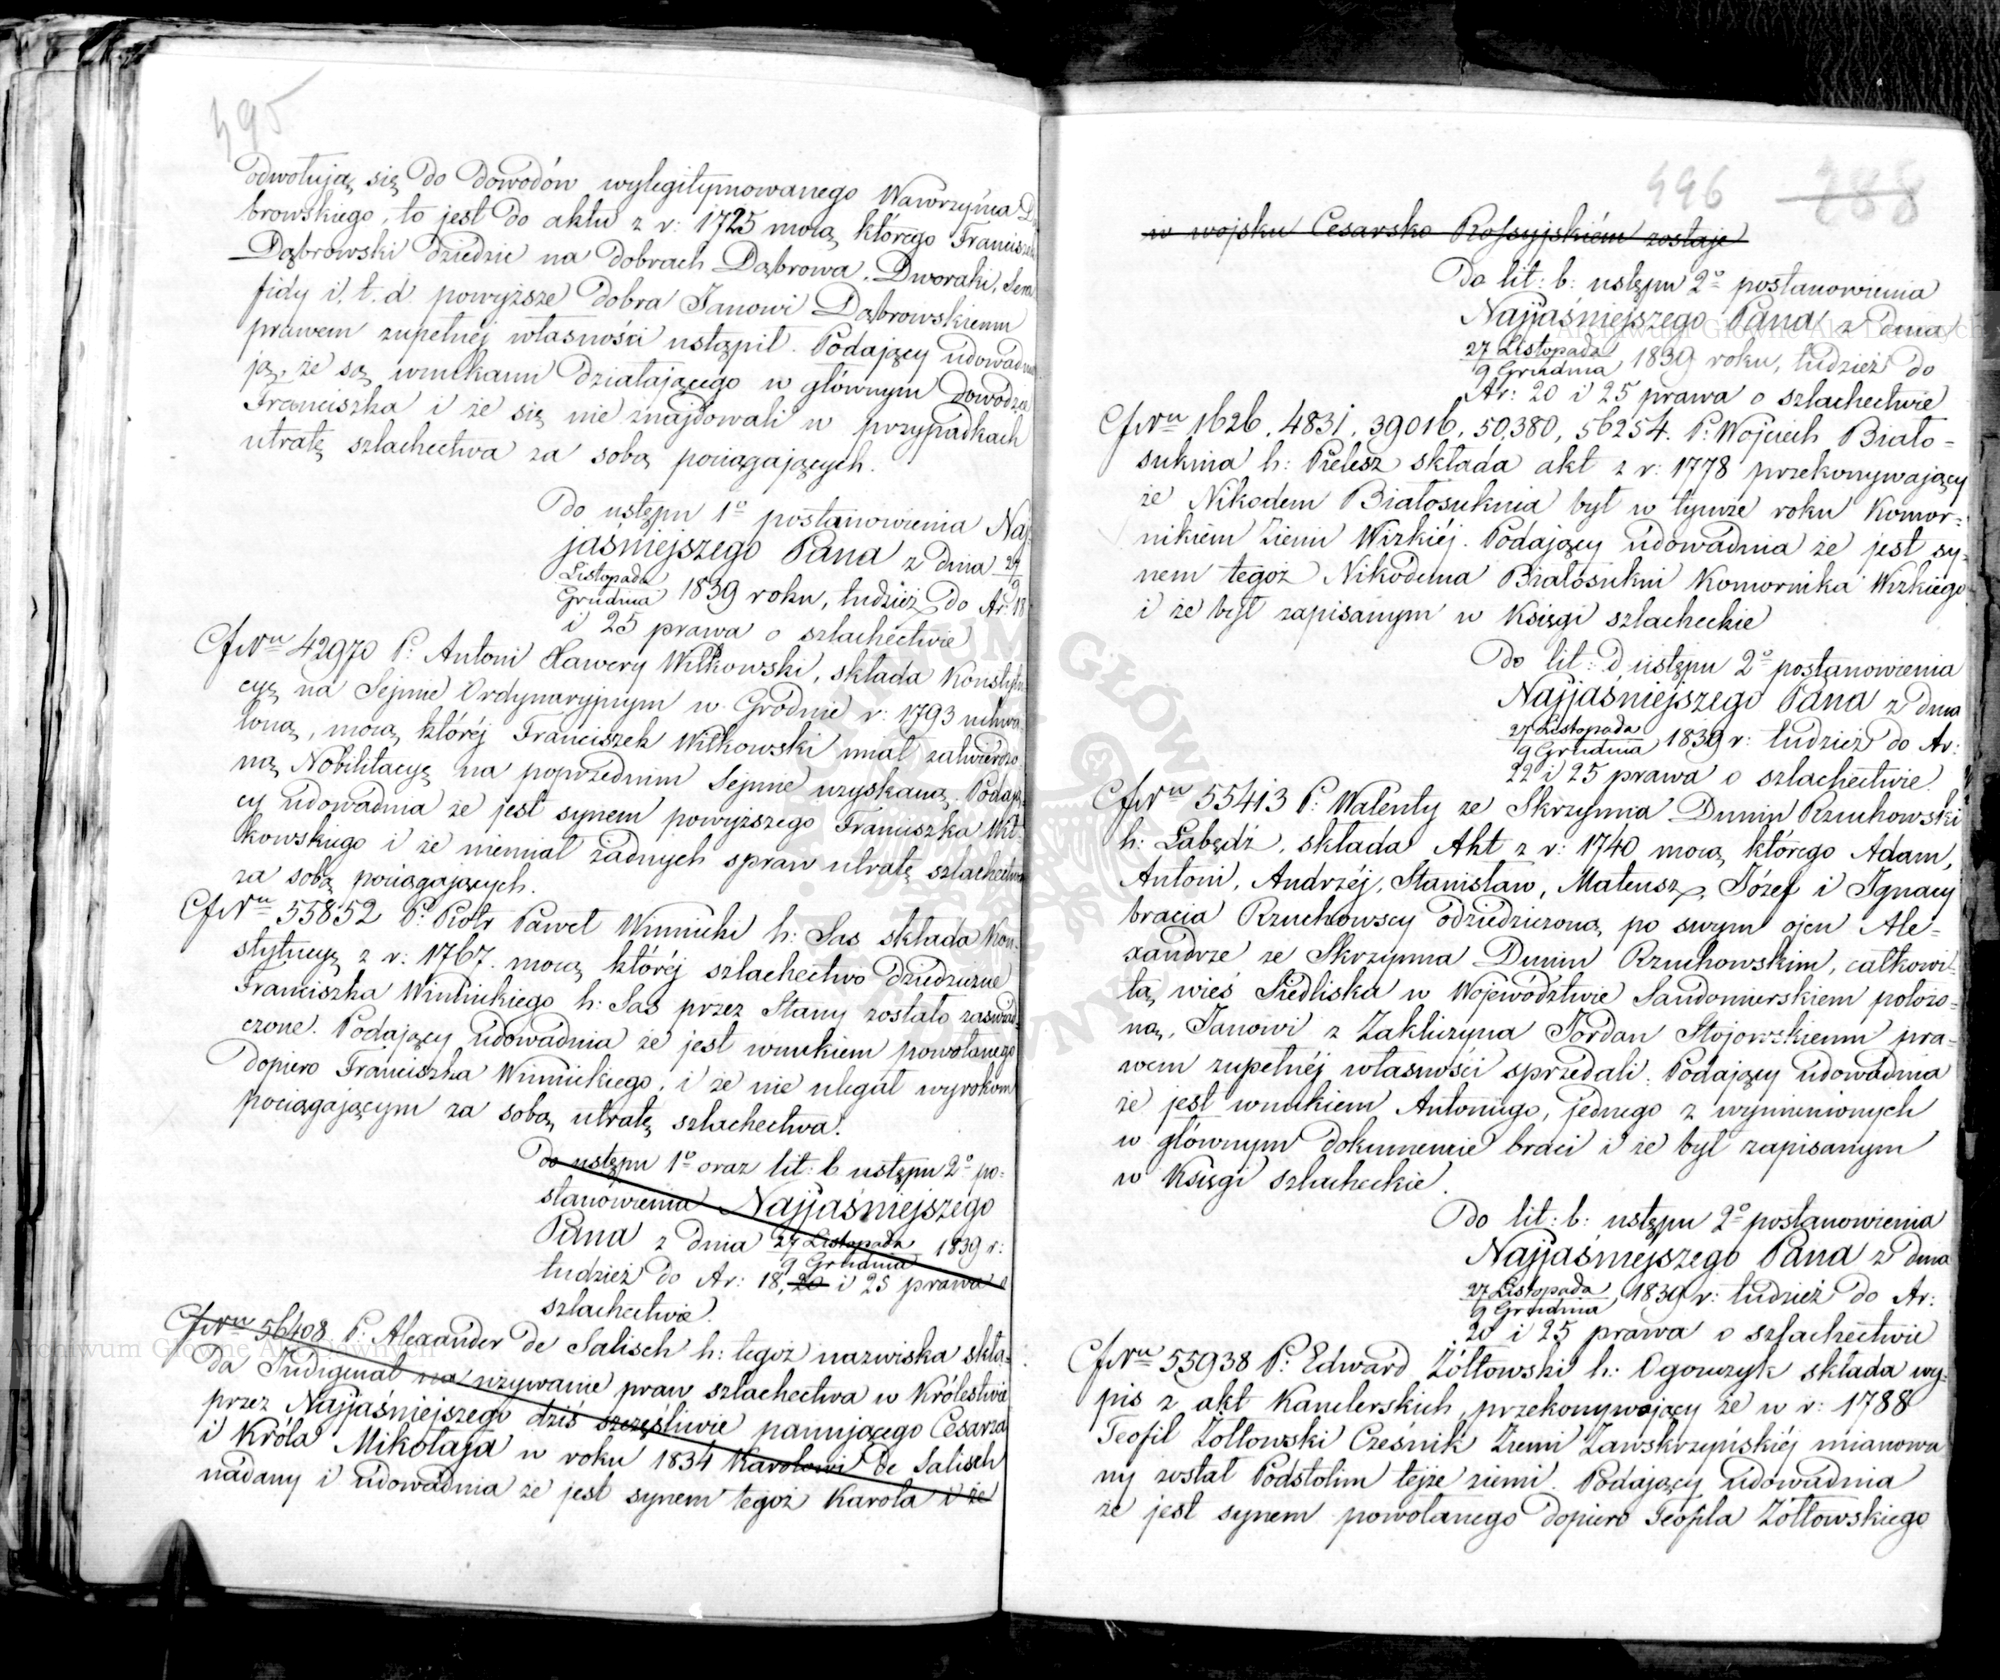 495
odwołują się do dowodów wylegitymowanego Wawrzyńca Dą
browskiego, to jest do aktu z r: 1725 mocą którego Franciszek
Dąbrowski dziedzic na dobrach Dąbrowa, Dworaki,
fidy i. t. d. powyższe dobra Janowi Dąbrowskiemu
prawem zupełnej własności ustąpił. Podający udowadnia
ją, że są wnukami działającego w głównym dowodzie
Franciszka i że się nie znajdowali w przypadkach
utratę szlachectwa za sobą pociągających.
Do ustępu 1º postanowienia Naj
jaśniejszego Pana z dnia 27
Listopada
9
Grudnia 1839 roku, tudzież do Ar: 18
i 25 prawa o szlachectwie
Nru 42970 P: Antoni Xawery Wilkowski, składa Konstytu
cyę na Sejmie Ordynaryjnym w Grodnie r: 1793 uchwa
loną, mocą któréj Franciszek Wilkowski miał zatwierdzo
ną Nobilitacyę na poprzednim Sejmie uzyskaną. Podają
cy udowadnia że jest synem powyższego Franciszka Wil-
kowskiego i że niemiał żadnych spraw utratę szlachectwa
za sobą pociągających.
Nru 55852 P: Piotr Paweł Winnicki h: Sas składa Kon-
stytucyę z r: 1767. mocą któréj szlachectwo dziedziczne
Franciszka Winnickiego h: Sas przez Stany zostało zaświad
czone. Podający udowadnia że jest wnukiem powołanego
dopiero Franciszka Winnickiego, i że nie ulegał wyrokom
pociągającym za sobą utratę szlachectwa.
do ustępu 1º oraz lit: b ustępu 2º po-
stanowienia Najjaśniejszego
Pana z dnia 27 Listopada
9 Grudnia 1839 r:
tudzież do Ar: 18, 20 i 25 prawa o
szlachectwie.
Nru 56408 P: Alexander de Salisch h: tegoż nazwiska skła-
da Indigenat na używanie praw szlachectwa w Królestwie
przez Najjaśniejszego dziś szczęśliwie panującego Cesarza
i Króla Mikołaja w roku 1834 Karolowi de Salisch
nadany i udowadnia że jest synem tegoż Karola i że
496 288
w wojsku Cesarsko Rossyjskiém zostaje
Do lit: b: ustępu 2º postanowienia
Najjaśniejszego Pana z dnia
27 Listopada
9 Grudnia 1839 roku, tudzież do
Ar: 20 i 25 prawa o szlachectwie
Nru 1626, 4831, 39016, 50,380, 56254. P: Wojciech Biało-
suknia h: Pielesz składa akt z r: 1778 przekonywający
że Nikodem Białosuknia był w tymże roku Komor-
nikiem Ziemi Wizkiéj. Podający udowadnia że jest sy-
nem tegoż Nikodema Białosukni Komornika Wizkiego
i że był zapisanym w Księgi szlacheckie
Do lit: d ustępu 2º postanowienia
Najjaśniejszego Pana z dnia
27 Listopada
9 Grudnia 1839 r: tudzież do Ar:
22 i 25 prawa o szlachectwie.
Nru 55413 P: Walenty ze Skrzynna Dunin Rzuchowski
h: Łabędź, składa Akt z r: 1740 mocą którego Adam,
Antoni, Andrzéj, Stanisław, Mateusz, Józef i Ignacy
bracia Rzuchowscy odziedziczoną po swym ojcu Ale-
xandrze ze Skrzynna Dunin Rzuchowskim, całkowi-
tą wieś Siedliska w Województwie Sandomierskiem położo-
ną, Janowi z Zakliczyna Jordan Stojowskiemu pra-
wem zupełnéj własności sprzedali. Podający udowadnia
że jest wnukiem Antoniego, jednego z wymienionych
w głównym dokumencie braci i że był zapisanym
w Księgi szlacheckie.
Do lit: b: ustępu 2º postanowienia
Najjaśniejszego Pana z dnia
27 Listopada
9 Grudnia 1839 r: tudzież do Ar:
20 i 25 prawa o szlachectwie
Nru 55938 P: Edward Żółtowski h: Ogończyk składa wy-
pis z akt Kanclerskich, przekonywający że w r: 1788
Teofil Żółtowski Cześnik Ziemi Zawskrzyńskiéj mianowa
ny został Podstolim tejże ziemi. Podający udowadnia
że jest synem powołanego dopiero Teofila Żółtowskiego